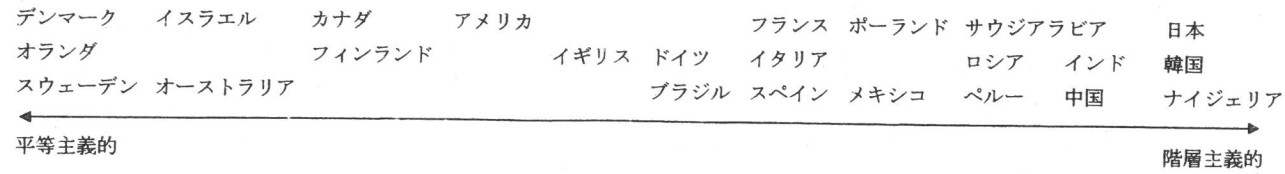 デンマーク イスラエル カナダ アメリカ フランス ポーランド サウジアラビア 日本
オランダ フィンランド イギリス ドイツ イタリア ロシア インド 韓国
スウェーデン オーストラリア ブラジル スペイン メキシコ ペルー 中国 ナイジェリア
平等主義的 階層主義的